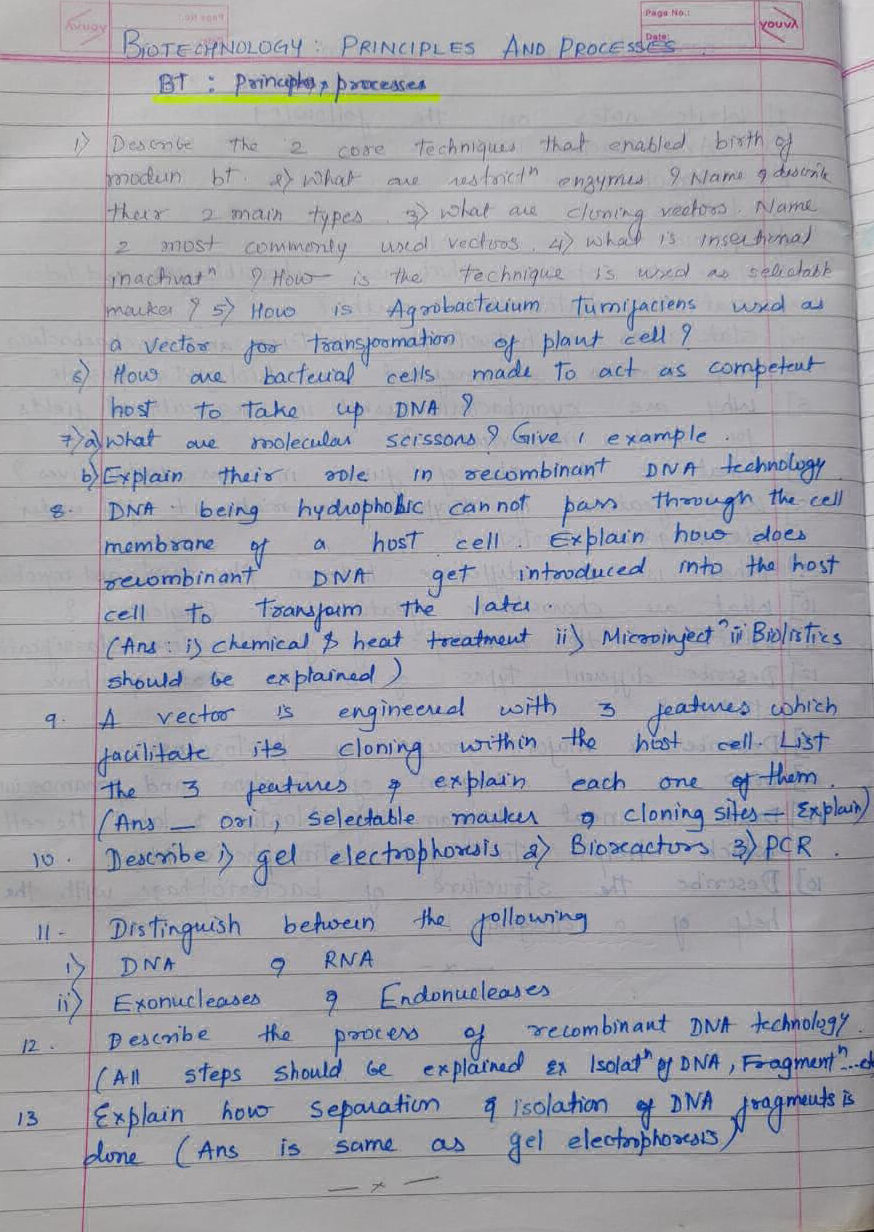 Page No.:
Date:
YOUVA
BIOTECHNOLOGY : PRINCIPLES AND PROCESSES.
BT : Principles, processes
1) Describe the 2 core techniques that enabled birth of
modern bt. 2) What are restrictⁿ enzymes ? Name & describe
their 2 main types. 3) What are cloning vectors. Name
2 most commonly used vectors. 4) What is insertional
inactivatⁿ ? How is the technique is used as selectable
marker ? 5) How is Agrobacterium tumifaciens used as
a vector for transformation of plant cell ?
6) How are bacterial cells made to act as competent
host to take up DNA ?
7) a) What are molecular scissors ? Give 1 example.
b) Explain their role in recombinant DNA technology
8. DNA being hydrophobic cannot pass through the cell
membrane of a host cell. Explain how does
recombinant DNA get introduced into the host
cell to transform the later.
(Ans : i) chemical & heat treatment ii) Microinjectⁿ iii Biolistics
should be explained)
9. A vector is engineered with 3 features which
facilitate its cloning within the host cell. List
the 3 features & explain each one of them.
(Ans _ ori, selectable marker & cloning sites + Explain)
10. Describe 1) gel electrophoresis 2) Bioreactors 3) PCR.
11- Distinguish between the following
i) DNA & RNA
ii) Exonucleases & Endonucleases
12. Describe the process of recombinant DNA technology.
(All steps should be explained Ex Isolatⁿ of DNA, Fragmentⁿ...etc
13 Explain how separation & isolation of DNA fragments is
done (Ans is same as gel electrophoresis)
— x —